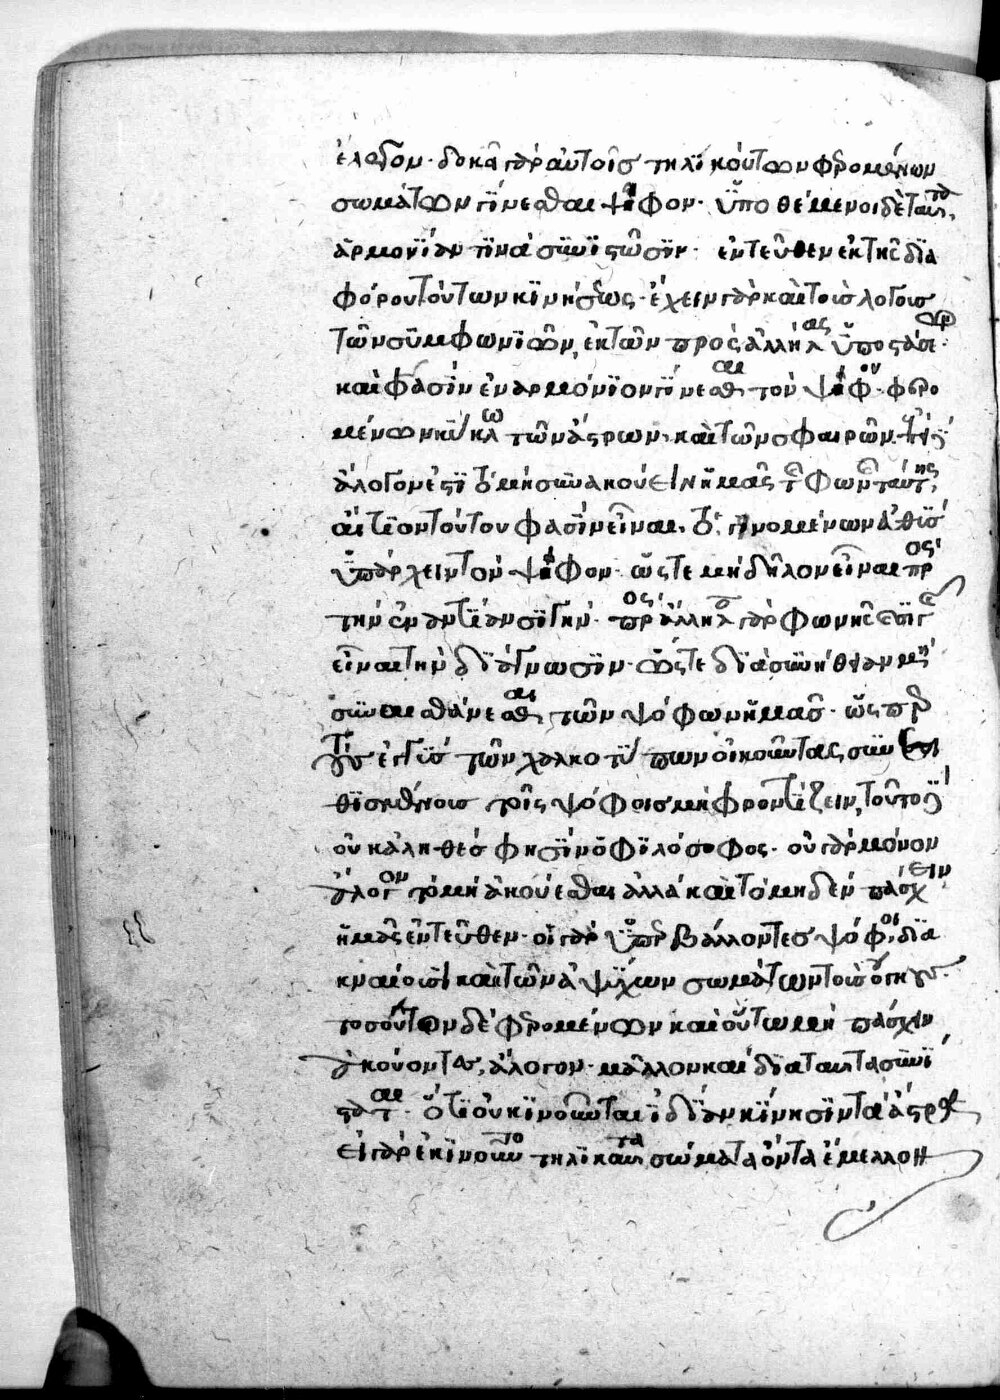 ἔλεγον· δοκεῖ γὰρ αὐτοῖς τηλικούτων φερομένων
σωμάτων γίνεσθαι ψόφον· ὑποθέμενοι δὲ ταῦτα,
ἁρμονίαν τινὰ συνιστῶσιν· ἐντεῦθεν ἐκ τῆς δια
φόρου τούτων κινήσεως· ἔχειν γὰρ καὶ τοὺς λόγους
τῶν συμφωνιῶν, ἐκ τῶν πρὸς ἀλλήλας ἀποστάσεων·
καὶ φασὶν ἐναρμόνιον γίνεσθαι τὸν ψόφον· φερο
μένων κύκλω τῶν ἄστρων, καὶ τῶν σφαιρῶν·
ἄλογον ἐστὶ τὸ μὴ συνακούειν ἡμᾶς τῆς φωνῆς ταύτης,
αἴτιον τούτου φασὶν εἶναι, τὸ γινομένων εὐθὺς
ὑπάρχειν τὸν ψόφον· ὥστε μὴ δῆλον εἶναι πρὸς
τὴν ἐναντίαν σιγήν· πρὸς ἄλληλα γὰρ φωνῆς καὶ σιγῆς
εἶναι τὴν διάγνωσιν· ὥστε διὰ συνήθειαν μὴ
συναισθάνεσθαι τῶν ψόφων ἡμᾶς· ὥσπερ
τῶν χαλκοτύπων οἰκοῦντας, συν
θισθέντας τοῖς ψόφοις μὴ φροντίζειν, τοῦτο
οὐκ ἀληθὲς φησὶν ὁ φιλόσοφος· οὐ γὰρ μόνον
ἄλογον τὸ μὴ ἀκούεσθαι ἀλλὰ καὶ τὸ μηδὲν πάσχειν
ἡμᾶς ἐντεῦθεν· οἱ γὰρ ὑπερβάλλοντες ψόφοι, δια
κναίουσι καὶ τῶν ἀψύχων σωμάτων τοὺς ὄγκους·
τοσούτων δὲ φερομένων καὶ οὕτω μὴ πάσχειν
ἀκούοντας, ἄλογον· μᾶλλον καὶ διὰ ταῦτα συνί
σταται· ὅτι οὐ κινοῦνται ἰδίαν κίνησιν τὰ ἄστρα
εἰ γὰρ ἐκινοῦντο τηλικαῦτα σώματα ὄντα ἔμελλον